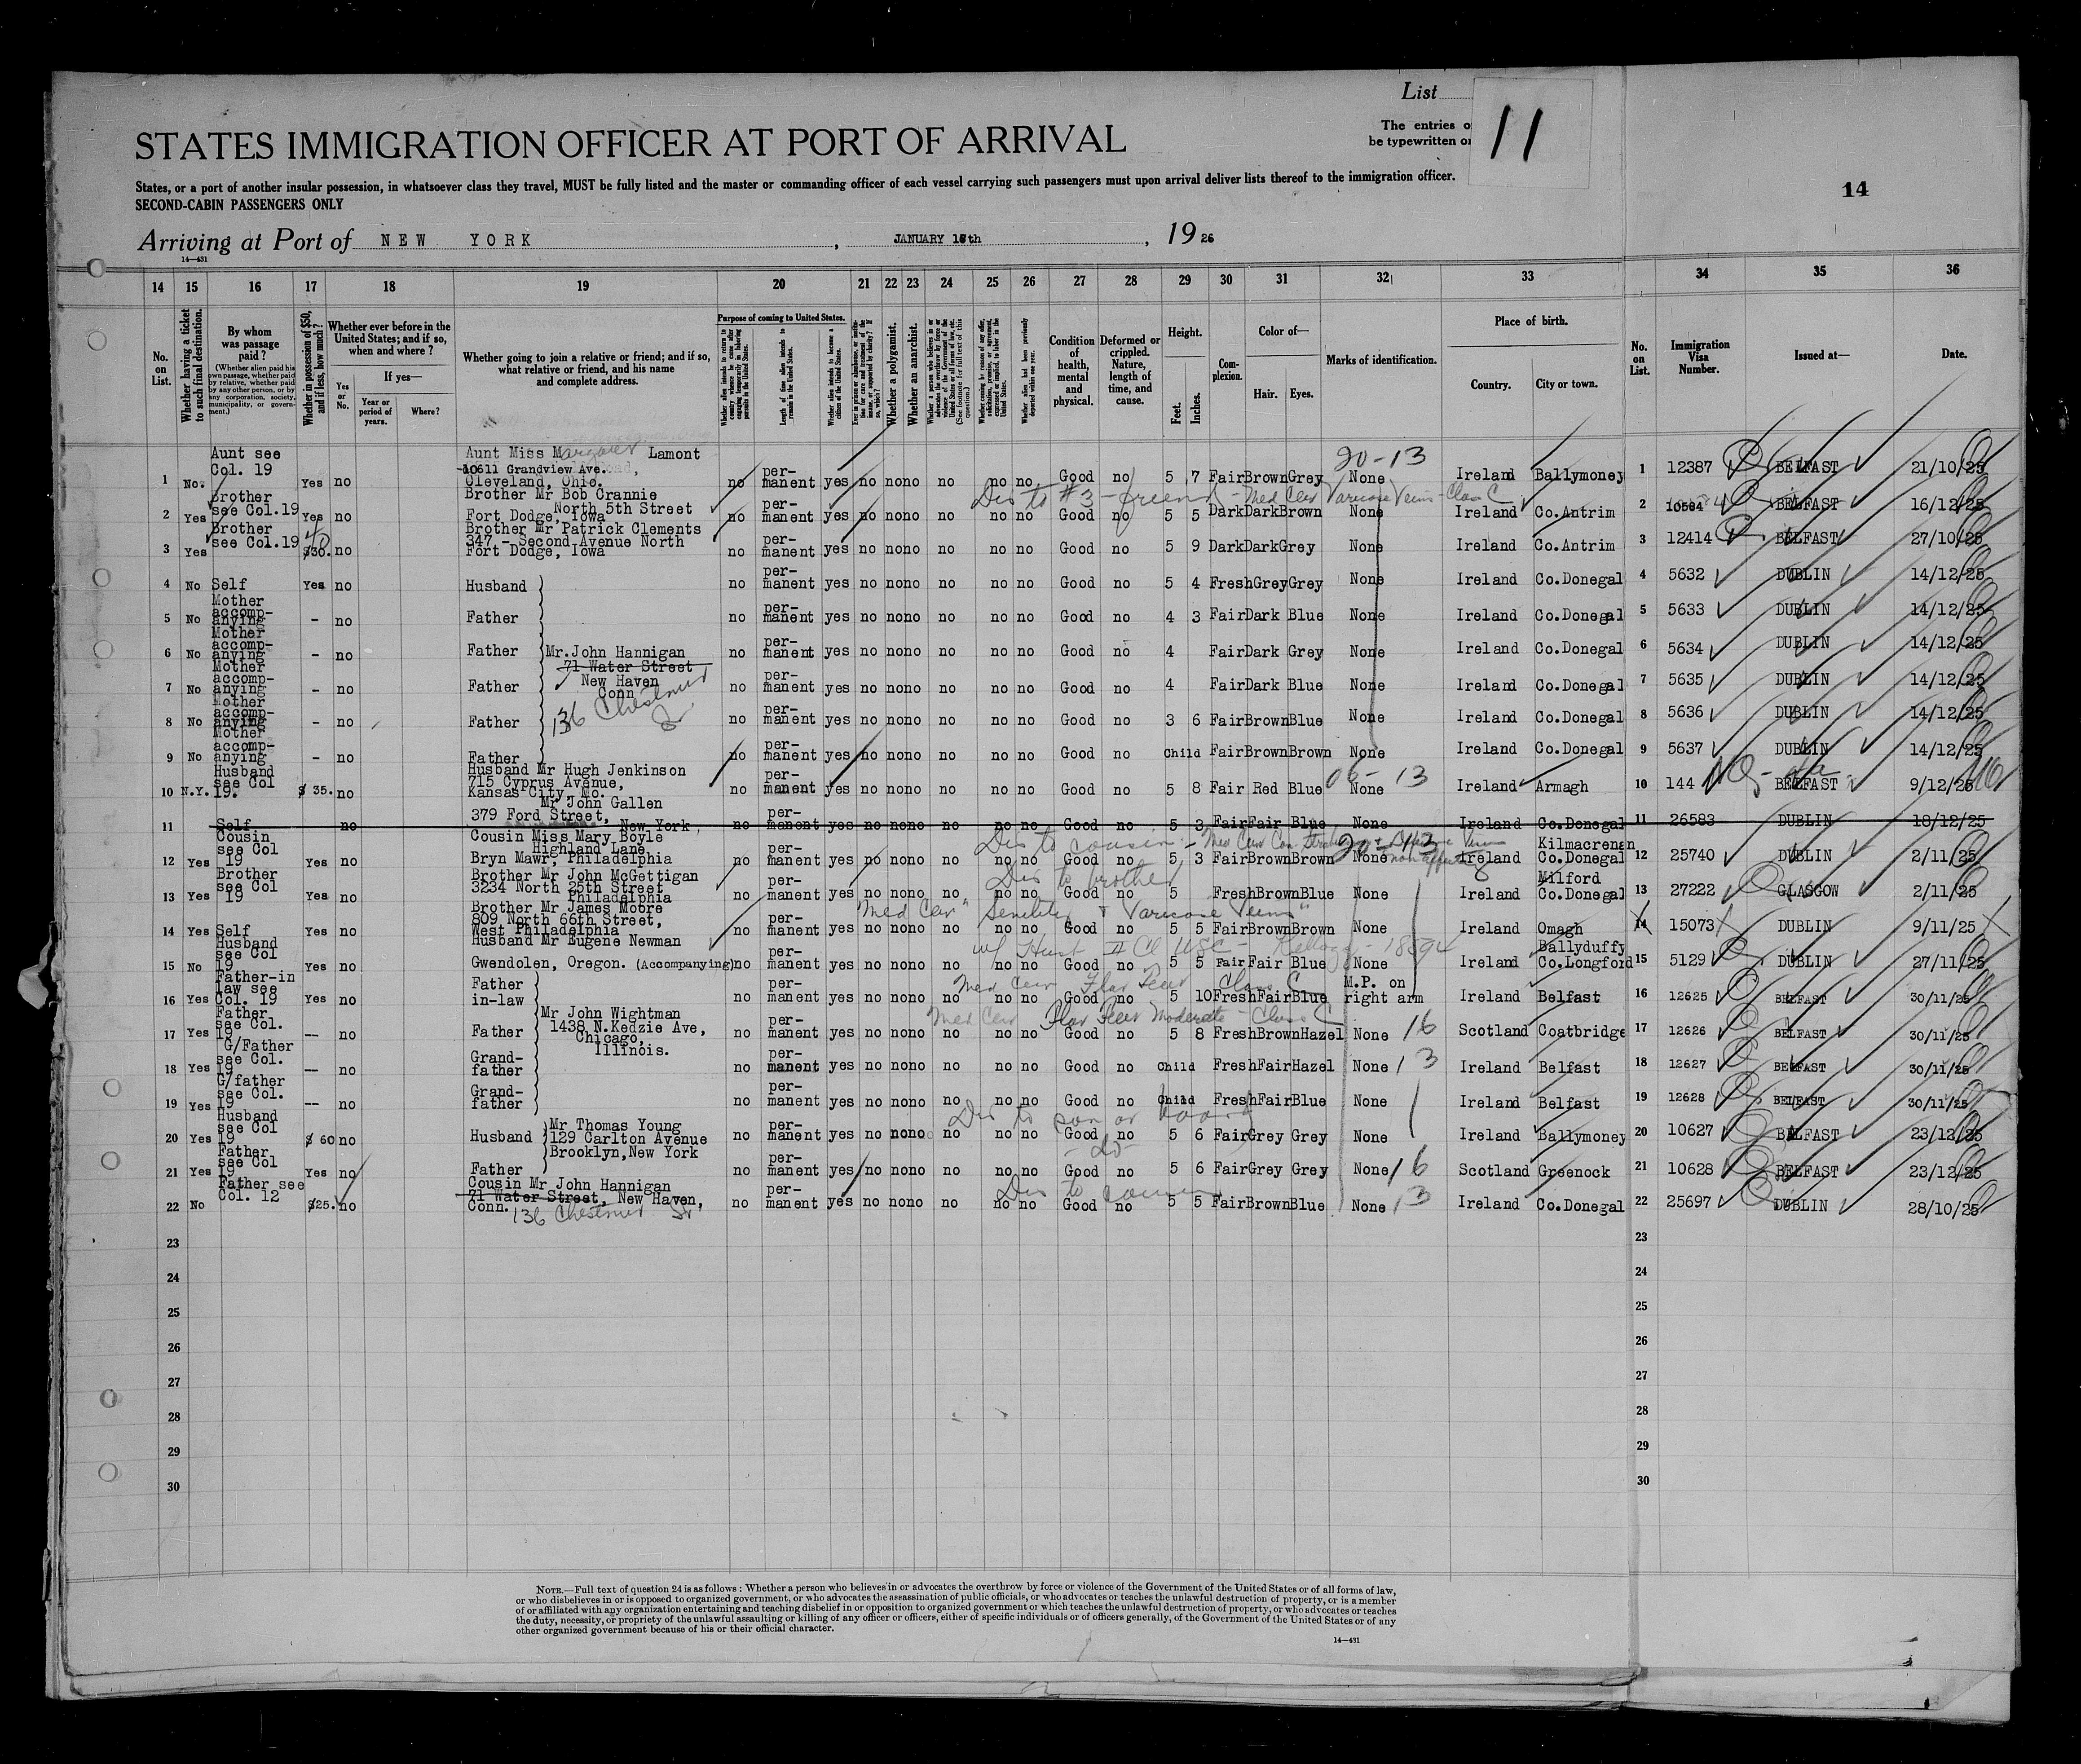 List
11
The entries o
be typewritten or
STATES IMMIGRATION OFFICER AT PORT OF ARRIVAL
States, or a port of another insular possession, in whatsoever class they travel, MUST be fully listed and the master or commanding officer of each vessel carrying such passengers must upon arrival deliver lists thereof to the immigration officer.
SECOND-CABIN PASSENGERS ONLY
14
Arriving at Port of NEW YORK, JANUARY th, 1926
14—431
14 15 16 17 18 19 20 21 22 23 24 25 26 27 28 29 30 31 32 33 34 35 36
No. on List.
Whether having a ticket to such final destination.
By whom was passage paid?
(Whether alien paid his own passage, whether paid by relative, whether paid by any other person, or by any corporation, society, municipality, or government.)
Whether in possession of $50, and if less, how much?
Whether ever before in the United States; and if so, when and where?
If yes—
Yes or No.
Year or period of years.
Where?
Whether going to join a relative or friend; and if so, what relative or friend, and his name and complete address.
Purpose of coming to United States.
Length of time alien intends to remain in the United States.
Whether alien intends to become a citizen of the United States.
Whether a polygamist.
Whether an anarchist.
Condition of health, mental and physical.
Deformed or crippled. Nature, length of time, and cause.
Height.
Feet. Inches.
Complexion.
Color of—
Hair. Eyes.
Marks of identification.
Place of birth.
Country. City or town.
No. on List.
Immigration Visa Number.
Issued at—
Date.
20-13
1 No. Aunt see Col. 19 Yes no Aunt Miss Margaret Lamont 10611 Grandview Ave. Cleveland, Ohio. no permanent yes no no no no no no Good no 5 7 Fair Brown Grey None Ireland Ballymoney 1 12387 BELFAST 21/10/25
Dis to #3 - friend - Med Cer Varicose Veins - Class C
2 Yes Brother see Col.19 Yes no Brother Mr Bob Crannie North 5th Street Fort Dodge, Iowa no permanent yes no no no no no no Good no 5 5 Dark Dark Brown None Ireland Co.Antrim 2 10584 BELFAST 16/12/25
3 Yes Brother see Col.19 $30. no Brother Mr Patrick Clements 347 - Second Avenue North Fort Dodge, Iowa no permanent yes no no no no no no Good no 5 9 Dark Dark Grey None Ireland Co.Antrim 3 12414 BELFAST 27/10/25
4 No Self Yes no Husband no permanent yes no no no no no no Good no 5 4 Fresh Grey Grey None Ireland Co.Donegal 4 5632 DUBLIN 14/12/25
5 No Mother accompanying - no Father no permanent yes no no no no no no Good no 4 3 Fair Dark Blue None Ireland Co.Donegal 5 5633 DUBLIN 14/12/25
6 No Mother accompanying - no Father Mr. John Hannigan 71 Water Street no permanent yes no no no no no no Good no 4 Fair Dark Grey None Ireland Co.Donegal 6 5634 DUBLIN 14/12/25
7 No Mother accompanying - no Father New Haven Conn no permanent yes no no no no no no Good no 4 Fair Dark Blue None Ireland Co.Donegal 7 5635 DUBLIN 14/12/25
136 Chestnut St
8 No Mother accompanying - no Father no permanent yes no no no no no no Good no 3 6 Fair Brown Blue None Ireland Co.Donegal 8 5636 DUBLIN 14/12/25
9 No Mother accompanying - no Father no permanent yes no no no no no no Good no Child Fair Brown Brown None Ireland Co.Donegal 9 5637 DUBLIN 14/12/25
10 N.Y. Husband see Col 19. $ 35. no Husband Mr Hugh Jenkinson 715 Cyprus Avenue, Kansas City, Mo. no permanent yes no no no no no no Good no 5 8 Fair Red Blue None Ireland Armagh 10 144 BELFAST 9/12/25
11 Self no Mr John Gallen 379 Ford Street, New York, no permanent yes no no no no no no Good no 5 3 Fair Fair Blue None Ireland Co.Donegal 11 26583 DUBLIN 18/12/25
Dis to cousin
12 Yes Cousin see Col 19 Yes no Cousin Miss Mary Boyle Highland Lane Bryn Mawr, Philadelphia no permanent yes no no no no no no Good no 5 3 Fair Brown Brown None Ireland Kilmacrenan Co.Donegal 12 25740 DUBLIN 2/11/25
Dis to brother
13 Yes Brother see Col 19 Yes no Brother Mr John McGettigan 3234 North 25th Street Philadelphia no permanent yes no no no no no no Good no 5 Fresh Brown Blue None Ireland Milford Co.Donegal 13 27222 GLASGOW 2/11/25
Med Cer "Senility & Varicose Veins"
14 Yes Self Yes no Brother Mr James Moore 809 North 66th Street, West Philadelphia no permanent yes no no no no no no Good no 5 5 Fair Brown Brown None Ireland Omagh 14 15073 DUBLIN 9/11/25
15 No Husband see Col 19 Yes no Husband Mr Eugene Newman Gwendolen, Oregon. (Accompanying) no permanent yes no no no no no no Good no 5 5 Fair Fair Blue None Ireland Ballyduffy Co.Longford 15 5129 DUBLIN 27/11/25
Med Cer Flat Feet Class C
16 Yes Father-in law see Col. 19 Yes no Father in-law no permanent yes no no no no no no Good no 5 10 Fresh Fair Blue M.P. on right arm Ireland Belfast 16 12625 BELFAST 30/11/25
Med Cer Flat Feet Moderate - Class C
17 Yes Father see Col. 19 -- no Father Mr John Wightman 1438 N.Kedzie Ave, Chicago, Illinois. no permanent yes no no no no no no Good no 5 8 Fresh Brown Hazel None 16 Scotland Coatbridge 17 12626 BELFAST 30/11/25
18 Yes G/Father see Col. 19 -- no Grand-father no permanent yes no no no no no no Good no Child Fresh Fair Hazel None 13 Ireland Belfast 18 12627 BELFAST 30/11/25
19 Yes G/father see Col. 19 -- no Grand-father no permanent yes no no no no no no Good no Child Fresh Fair Blue None Ireland Belfast 19 12628 BELFAST 30/11/25
20 Yes Husband see Col 19 $ 60 no Husband Mr Thomas Young 129 Carlton Avenue Brooklyn, New York no permanent yes no no no no no no Good no 5 6 Fair Grey Grey None Ireland Ballymoney 20 10627 BELFAST 23/12/25
- do -
21 Yes Father see Col 19 Yes no Father no permanent yes no no no no no no Good no 5 6 Fair Grey Grey None 16 Scotland Greenock 21 10628 BELFAST 23/12/25
Dis to cousin
22 No Father see Col. 12 $25. no Cousin Mr John Hannigan 71 Water Street, New Haven, Conn. 136 Chestnut St no permanent yes no no no no no no Good no 5 5 Fair Brown Blue None 13 Ireland Co.Donegal 22 25697 DUBLIN 28/10/25
23 23
24 24
25 25
26 26
27 27
28 28
29 29
30 30
NOTE.—Full text of question 24 is as follows: Whether a person who believes in or advocates the overthrow by force or violence of the Government of the United States or of all forms of law,
or who disbelieves in or is opposed to organized government, or who advocates the assassination of public officials, or who advocates or teaches the unlawful destruction of property, or is a member
of or affiliated with any organization entertaining and teaching disbelief in or opposition to organized government or which teaches the unlawful destruction of property, or who advocates or teaches
the duty, necessity, or propriety of the unlawful assaulting or killing of any officer or officers, either of specific individuals or of officers generally, of the Government of the United States or of any
other organized government because of his or their official character.
14—431